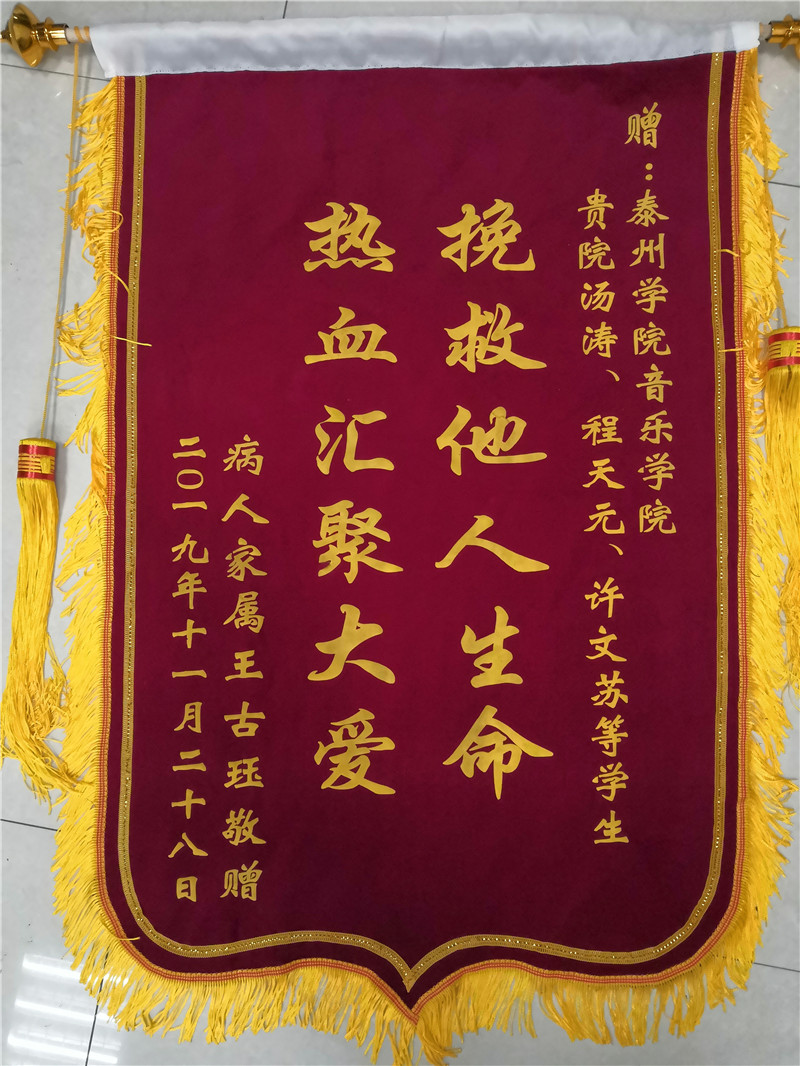 赠：泰州学院音乐学院
贵院汤涛、程天元、许文苏等学生
挽救他人生命
热血汇聚大爱
病人家属王古珏敬赠
二〇一九年十一月二十八日